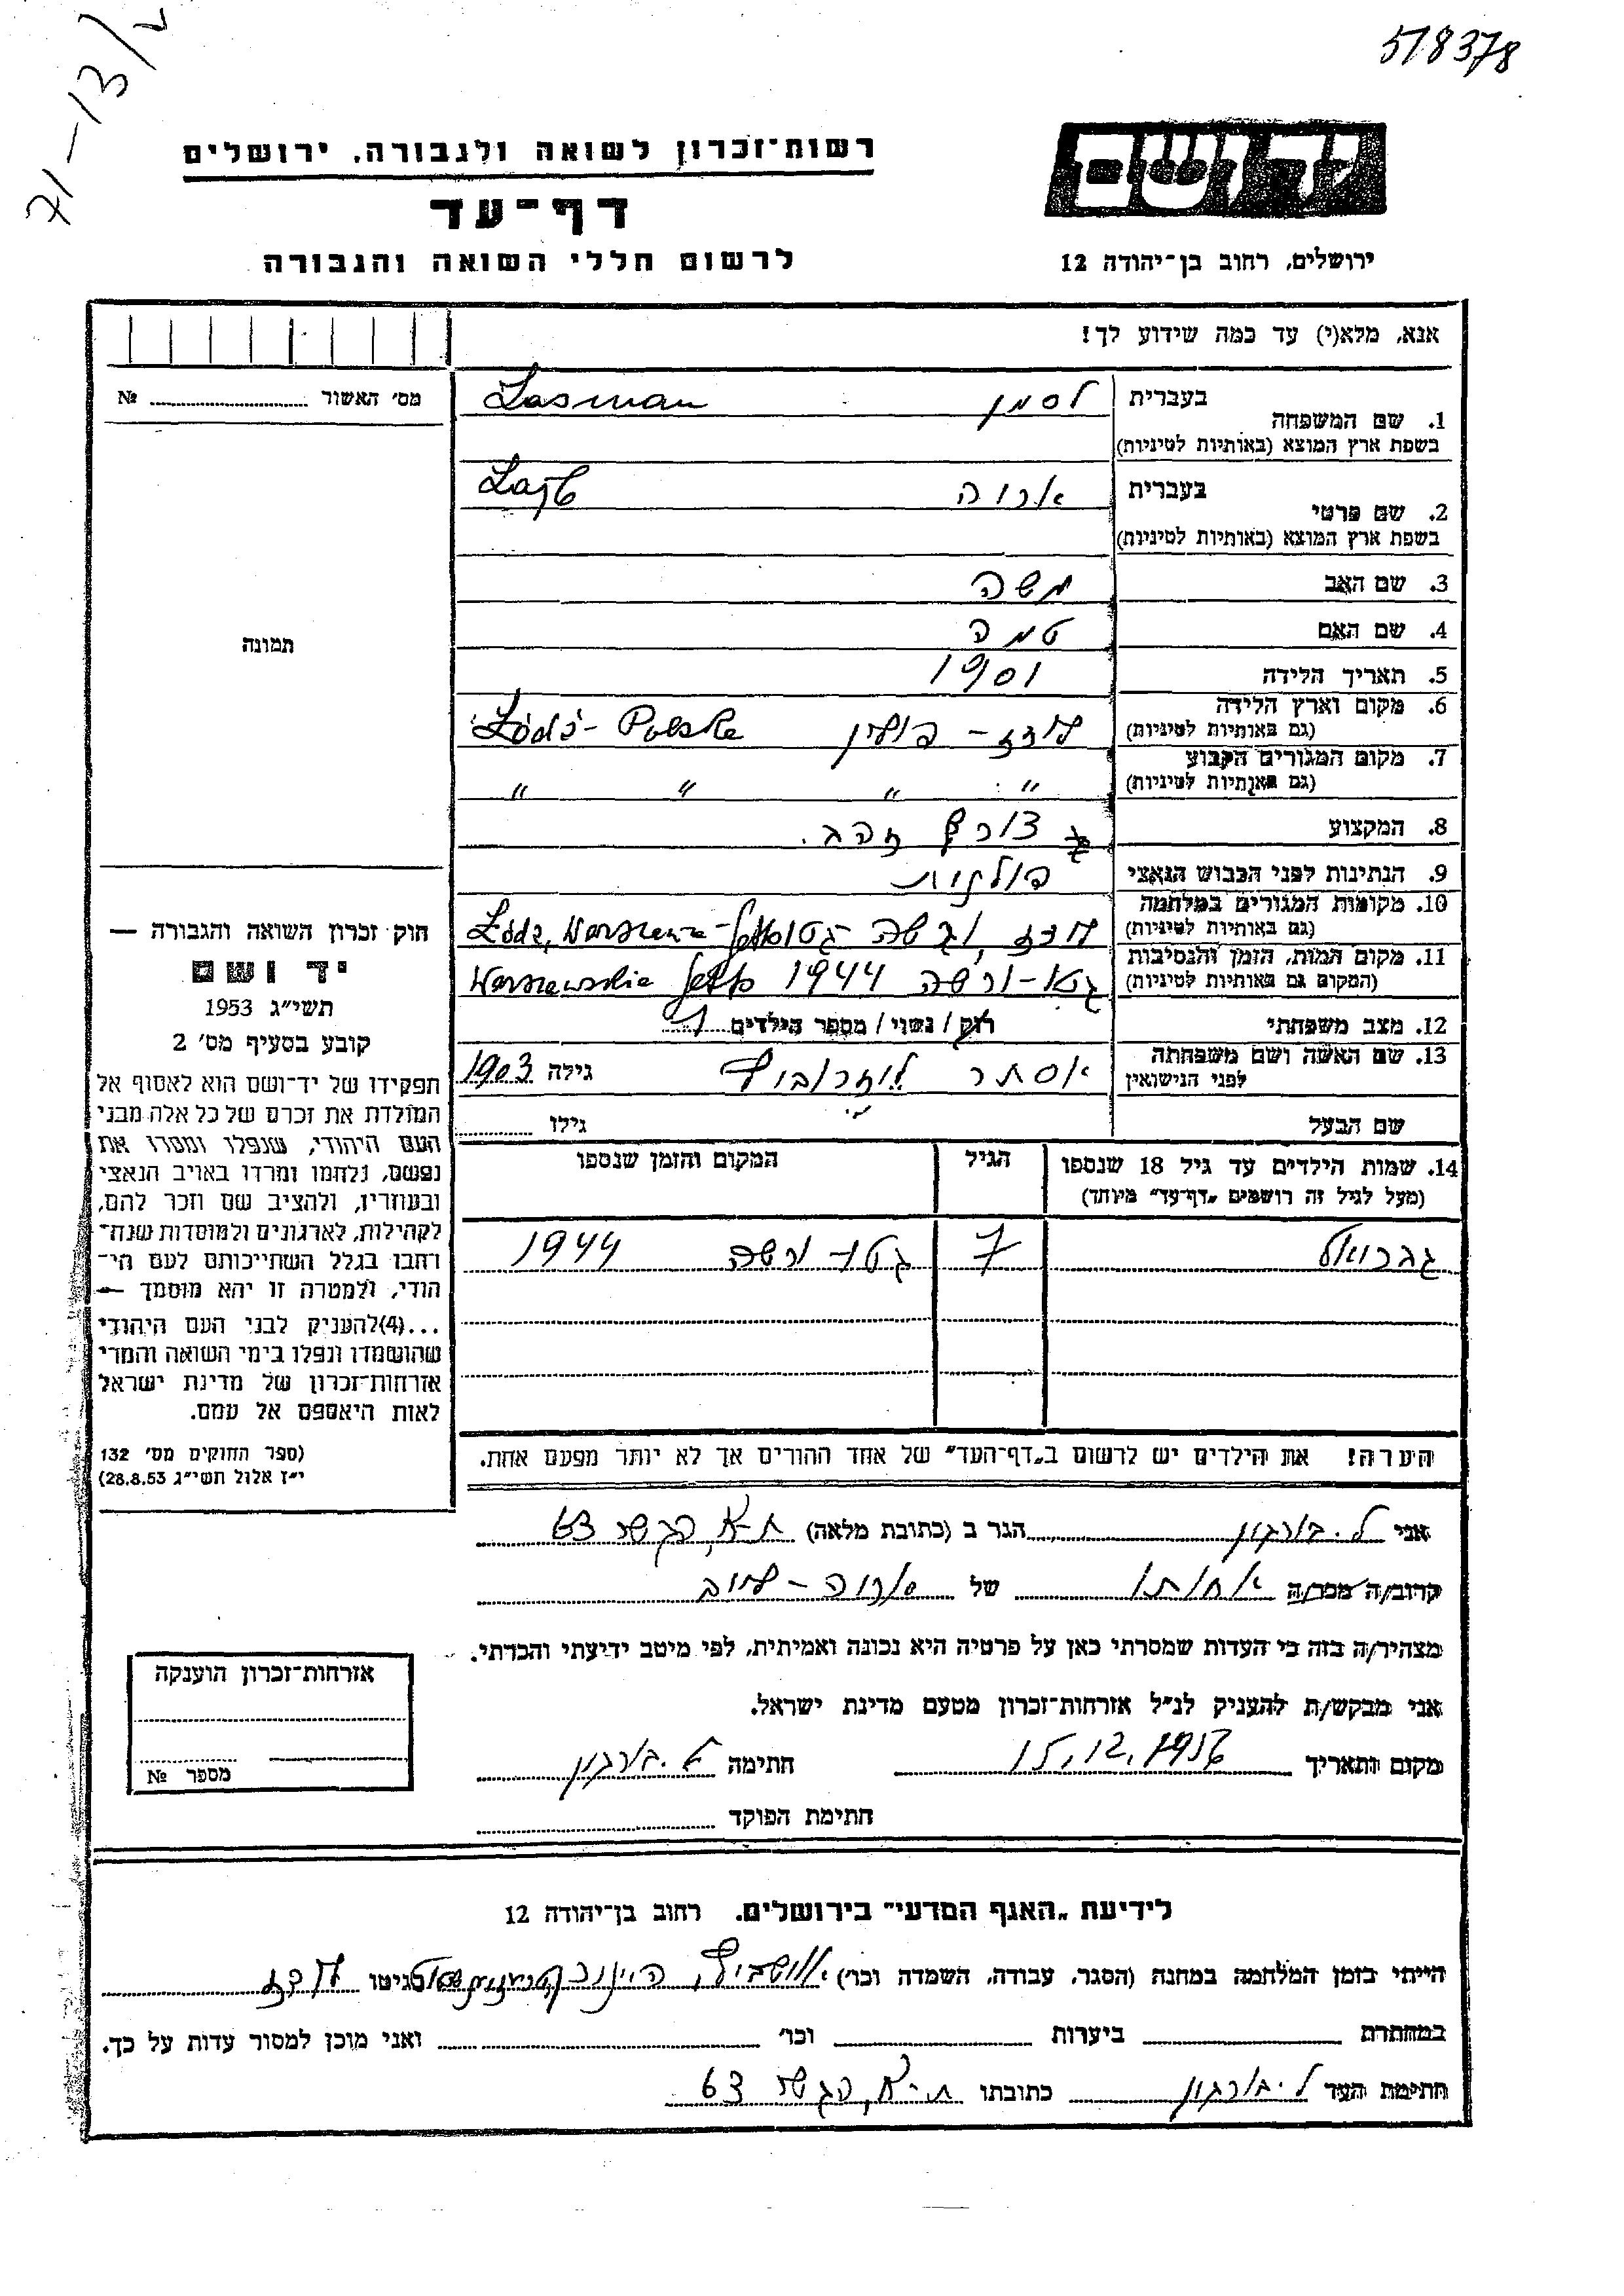 518378
71-13/
יד ושם
רשות־זכרון לשואה ולגבורה, ירושלים
דף־עד
לרשום חללי השואה והגבורה
ירושלים, רחוב בן־יהודה 12
אנא, מלא(י) עד כמה שידוע לך!
מס' האשור № 
1. שם המשפחה בעברית לסמן Lasman
בשפת ארץ המוצא (באותיות לטיניות)
2. שם פרטי בעברית
בשפת ארץ המוצא (באותיות לטיניות)
3. שם האב משה
4. שם האם טמה
5. תאריך הלידה 1901
6. מקום וארץ הלידה לודז - פולין Łódź - Polska
(גם באותיות לטיניות)
7. מקום המגורים הקבוע " " " "
(גם באותיות לטיניות)
8. המקצוע צורף זהב.
9. הנתינות לפני הכבוש הנאצי פולנית
10. מקומות המגורים במלחמה לודז, ורשה - גטו Łódź, Warszawa - getto
(גם באותיות לטיניות)
11. מקום המות, הזמן והנסיבות גטו - ורשה 1944 Warszawskie getto
(המקום גם באותיות לטיניות)
12. מצב משפחתי רוק / נשוי / מספר הילדים 1
13. שם האשה ושם משפחתה אסתר גילה 1903
לפני הנישואין
שם הבעל גילו
14. שמות הילדים עד גיל 18 שנספו הגיל המקום והזמן שנספו
(מעל לגיל זה רושמים „דף־עד" מיוחד)
גבריאל 7 גטו ורשה 1944
הערה! את הילדים יש לרשום ב„דף־העד" של אחד ההורים אך לא יותר מפעם אחת.
תמונה
חוק זכרון השואה והגבורה —
יד ושם
תשי"ג 1953
קובע בסעיף מס' 2
תפקידו של יד־ושם הוא לאסוף אל
המולדת את זכרם של כל אלה מבני
העם היהודי, שנפלו ומסרו את
נפשם, נלחמו ומרדו באויב הנאצי
ובעוזריו, ולהציב שם וזכר להם,
לקהילות, לארגונים ולמוסדות שנח־
רבו בגלל השתייכותם לעם הי־
הודי, ולמטרה זו יהא מוסמך —
...(4)להעניק לבני העם היהודי
שהושמדו ונפלו בימי השואה והמרי
אזרחות־זכרון של מדינת ישראל
לאות היאספם אל עמם.
(ספר החוקים מס' 132
י"ז אלול תשי"ג 28.8.53)
אני ל. בורגון הגר ב (כתובת מלאה) ת-א, 63
קרוב/ה מכר/ה אחותו של
מצהיר/ה בזה כי העדות שמסרתי כאן על פרטיה היא נכונה ואמיתית, לפי מיטב ידיעתי והכרתי.
אני מבקש/ת להעניק לנ"ל אזרחות־זכרון מטעם מדינת ישראל.
מקום ותאריך 15.12.1956 חתימה ל. בורגון
חתימת הפוקד
אזרחות־זכרון הוענקה
מספר №
לידיעת „האגף המדעי" בירושלים. רחוב בן־יהודה 12
הייתי בזמן המלחמה במחנה (הסגר, עבודה, השמדה וכו') אושביץ, בגיטו לודז
במחתרת ביערות וכו' ואני מוכן למסור עדות על כך.
חתימת העד ל. בורגון כתובתו ת-א, 63